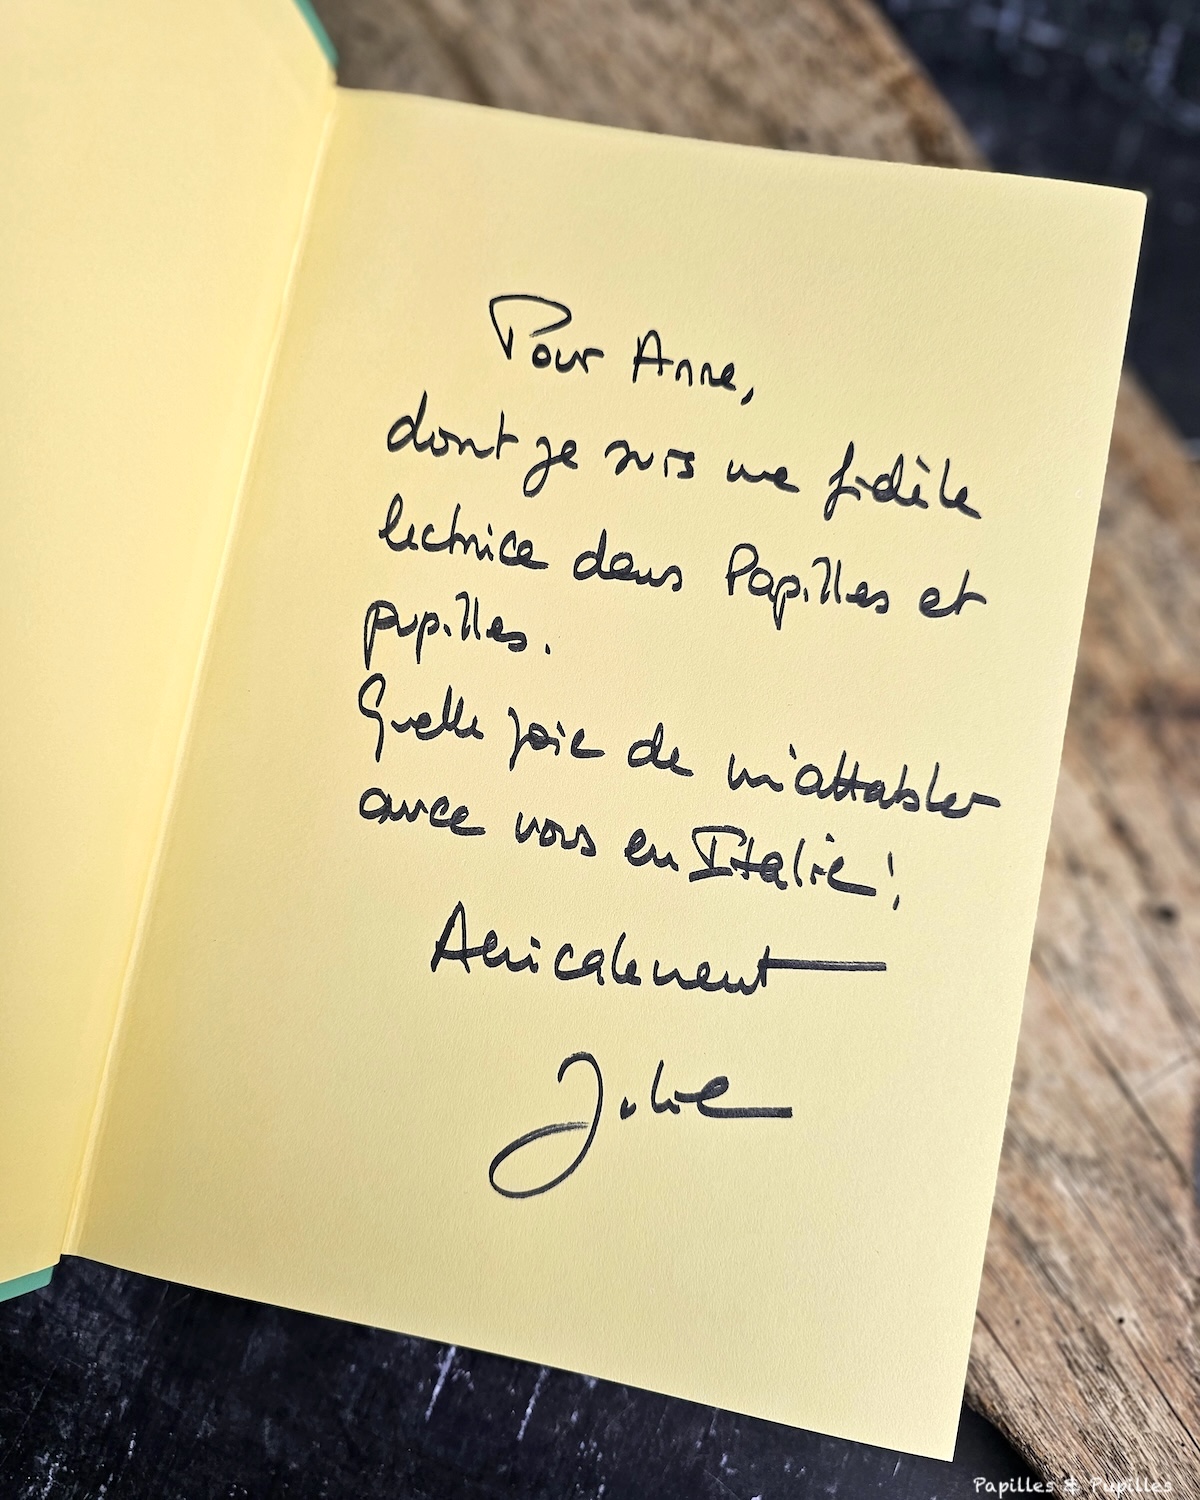 Pour Anne,
dont je suis une fidèle
lectrice dans Papilles et
pupilles.
Quelle joie de m'attabler
avec vous en Italie !
Amicalement
Julie
Papilles & Pupilles